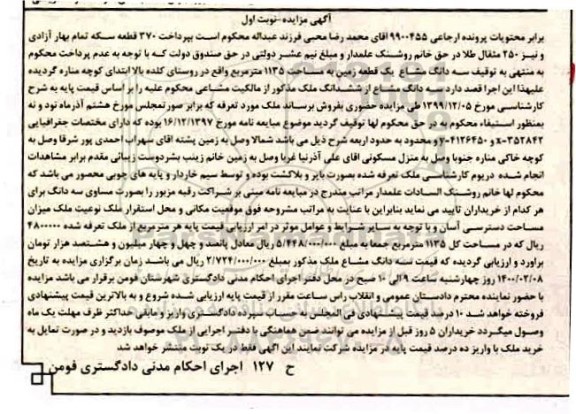 آگهی مزایده-نوبت اول
برابر محتویات پرونده ارجاعی ۹۹۰۰۴۵۵ آقای محمد رضا محبی فرزند عبداله محکوم است بپرداخت ۳۷۰ قطعه سکه تمام بهار آزادی
و نیز ۲۵۰ مثقال طلا در حق خانم روشنک علمدار و مبلغ نیم عشر دولتی در حق صندوق دولت که با توجه به عدم پرداخت محکوم
به منتهی به توقیف سه دانگ مشاع یک قطعه زمین به مساحت ۱۱۳۵ مترمربع واقع در روستای کلده بالا ابتدای کوچه مناره گردیده
علیهذا این اجرا قصد دارد سه دانگ مشاع از ششدانگ ملک مذکور از مالکیت مشاعی محکوم علیه را بر اساس قیمت پایه به شرح
کارشناسی مورخ ۱۳۹۹/۱۲/۰۵ طی مزایده حضوری بفروش برساند ملک مورد تعرفه که برابر صورتمجلس مورخ هشتم آذرماه نود و نه
بمنظور استیفاء محکوم به در حق محکوم لها توقیف گردید موضوع مبایعه نامه مورخ ۱۶/۱۲/۱۳۹۷ بوده که دارای مختصات جغرافیایی
x=۳۵۲۸۴۲ و y=۴۱۲۶۴۵۰ و محدود به حدود اربعه شرح ذیل می باشد شمالا وصل به زمین پشته آقای سهراب احمدی پور شرقا وصل به
کوچه خاکی مناره جنوبا وصل به منزل مسکونی آقای علی آذرنیا غربا وصل به زمین خانم زینب بشردوست زیبائی مقدم برابر مشاهدات
انجام شده دریوم کارشناسی ملک تعرفه شده بصورت بایر و بلاکشت بوده و توسط سیم خاردار و پایه های چوبی محصور می باشد که
محکوم لها خانم روشنک السادات علمدار مراتب مندرج در مبایعه نامه مبنی بر شراکت رقبه مزبور را بصورت مساوی سه دانگ برای
هر کدام از خریداران تایید می نماید بنابراین با عنایت به مراتب مشروحه فوق موقعیت مکانی و محل استقرار ملک نوعیت ملک میزان
مساحت دسترسی آسان و با توجه به سایر شرایط و عوامل موثر در امر ارزیابی قیمت پایه هر مترمربع از ملک تعرفه شده ۴۸۰۰۰۰۰
ریال که در مساحت کل ۱۱۳۵ مترمربع جمعا به مبلغ ۵/۴۴۸/۰۰۰/۰۰۰ ریال معادل پانصد و چهل و چهار میلیون و هشتصد هزار تومان
براورد و ارزیابی گردیده که قیمت سه دانگ مشاع ملک مذکور بمبلغ ۲/۷۲۴/۰۰۰/۰۰۰ ریال می باشد زمان برگزاری مزایده به تاریخ
۱۴۰۰/۰۲/۰۸ روز چهارشنبه ساعت ۹ الی ۱۰ صبح در محل دفتر اجرای احکام مدنی دادگستری شهرستان فومن برقرار می باشد مزایده
با حضور نماینده محترم دادستان عمومی و انقلاب راس ساعت مقرر از قیمت پایه ارزیابی شده شروع و به بالاترین قیمت پیشنهادی
فروخته خواهد شد ۱۰ درصد قیمت پیشنهادی فی المجلس به حساب سپرده دادگستری واریز و مابقی حداکثر ظرف مهلت یک ماه
وصول میگردد خریداران ۵ روز قبل از مزایده می توانند ضمن هماهنگی با دفتر اجرایی از ملک موصوف بازدید و در صورت تمایل به
خرید ملک با واریز ده درصد قیمت پایه در مزایده شرکت نمایند این آگهی فقط در یک نوبت منتشر خواهد شد
ح ۱۲۷ اجرای احکام مدنی دادگستری فومن